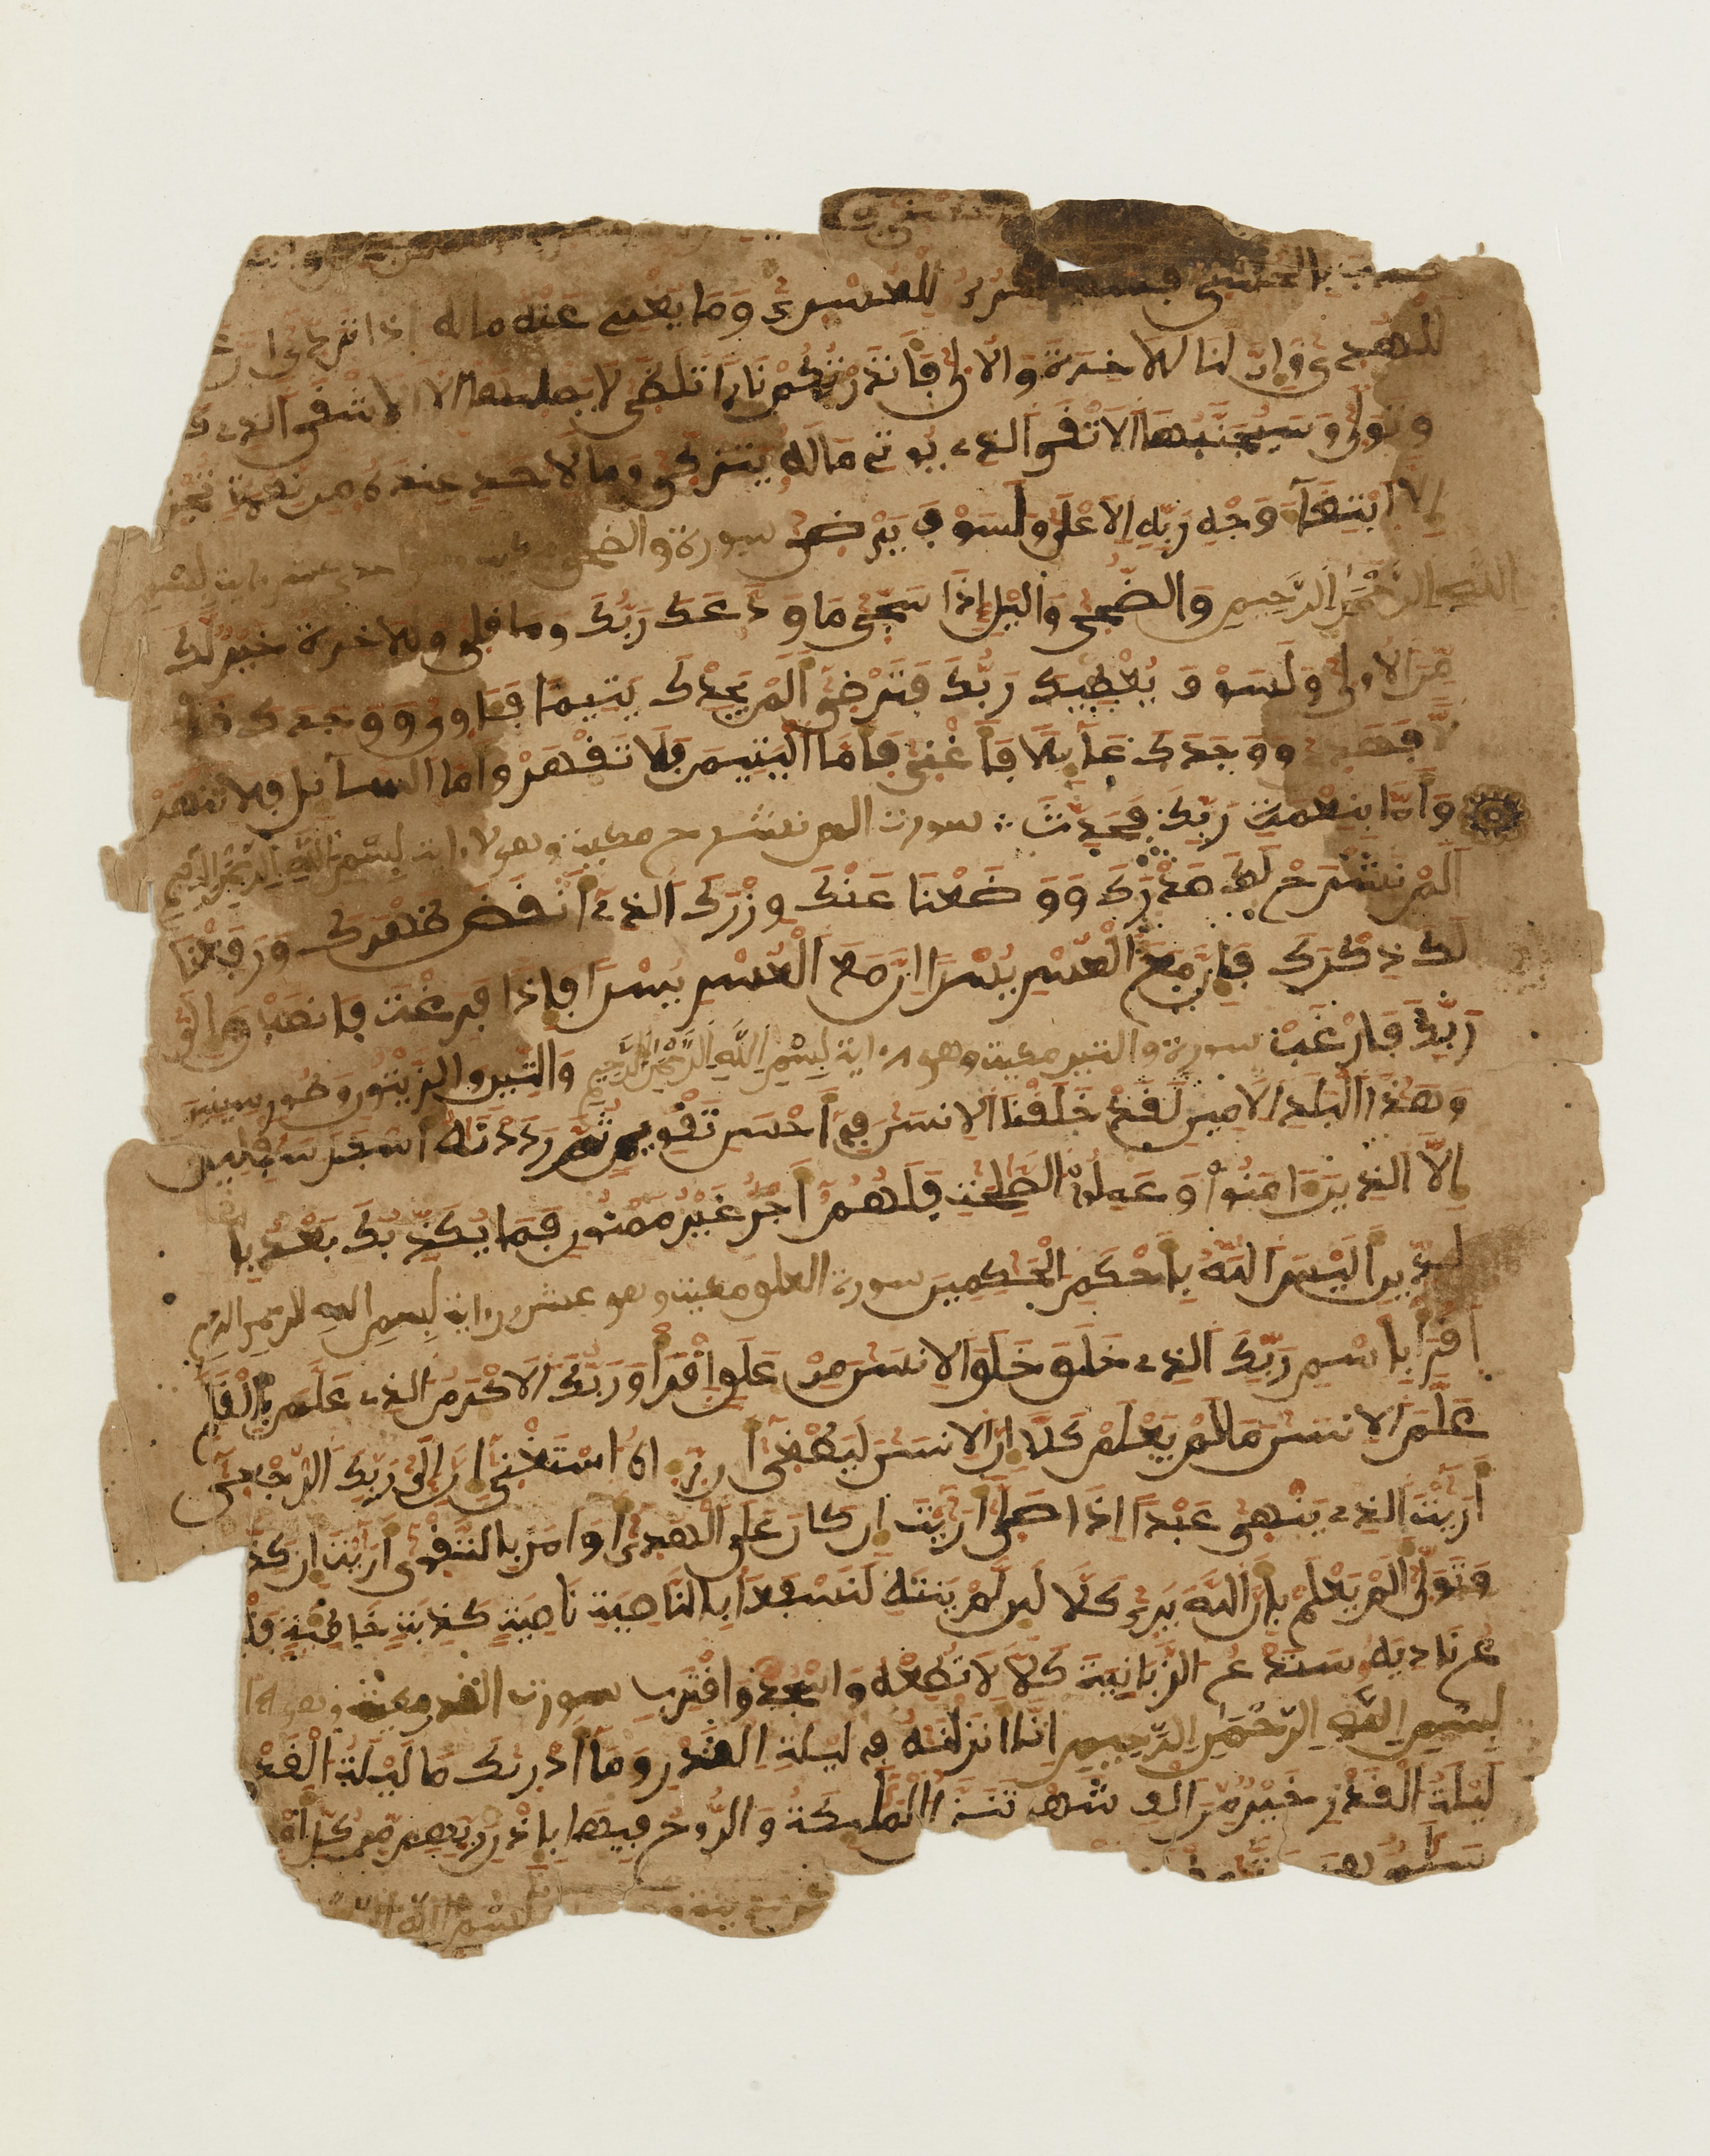 بالحسنى فسنيسره للعسرى وما يغنى عنه ماله إذا تردى إن
للهدى وإن لنا للاخرة والاولى فأنذرتكم نارا تلظى لا يصليها إلا الاشقى الذى ك
وتولى وسيجنبها الاتقى الذى يوتى ماله يتزكى وما لاحد عنده من نعمة تجز
إلا ابتغاء وجه ربه الاعلى ولسوف يرضى سورة والضحى مكية وهى احد عشر اية بسم
الله الرحمن الرحيم والضحى واليل إذا سجى ما ودعك ربك وما قلى وللاخرة خير لك
من الاولى ولسوف يعطيك ربك فترضى ألم يجدك يتيما فئاوى ووجدك ضا
لا فهدى ووجدك عائلا فأغنى فأما اليتيم فلا تقهر وأما السائل فلا تنهر
وأما بنعمة ربك فحدث سورت الم نشرح مكية وهى اية بسم الله الرحمن الرحيم
ألم نشرح لك صدرك ووضعنا عنك وزرك الذى أنقض ظهرك ورفعنا
لك ذكرك فإن مع العسر يسرا إن مع العسر يسرا فإذا فرغت فانصب وإلى
ربك فارغب سورة والتين مكية وهى اية بسم الله الرحمن الرحيم والتين والزيتون وطور سينين
وهذا البلد الامين لقد خلقنا الانسن فى أحسن تقويم ثم رددنه أسفل سفلين
إلا الذين ءامنوا وعملوا الصلحت فلهم أجر غير ممنون فما يكذبك بعد با
لدين أليس الله بأحكم الحكمين سورة العلق مكية وهى عشرون اية بسم الله الرحمن الرحيم
اقرأ باسم ربك الذى خلق خلق الانسن من علق اقرأ وربك الاكرم الذى علم بالقلم
علم الانسن ما لم يعلم كلا إن الانسن ليطغى أن رءاه استغنى إن إلى ربك الرجعى
أريت الذى ينهى عبدا إذا صلى أريت إن كان على الهدى أو امر بالتقوى أريت إن كذ
وتولى ألم يعلم بأن الله يرى كلا لين لم ينته لنسفعا بالناصية ناصية كذبة خاطئة فليد
ع ناديه سندع الزبانية كلا لا تطعه واسجد واقترب سورت القدر مكية وهى
بسم الله الرحمن الرحيم إنا أنزلنه فى ليلة القدر وما أدريك ما ليلة القد
ليلة القدر خير من ألف شهر تنزل الملئكة والروح فيها بإذن ربهم من كل أمر
سلم هى
بسم الله